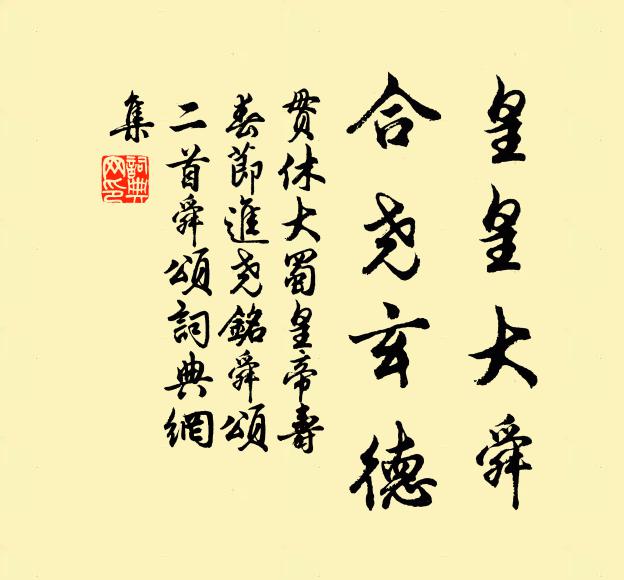 皇皇大舜
合尧玄德
贯休大蜀皇帝壽
春節進尧銘舜頌
二首舜頌詞典網
集
詞典
网印